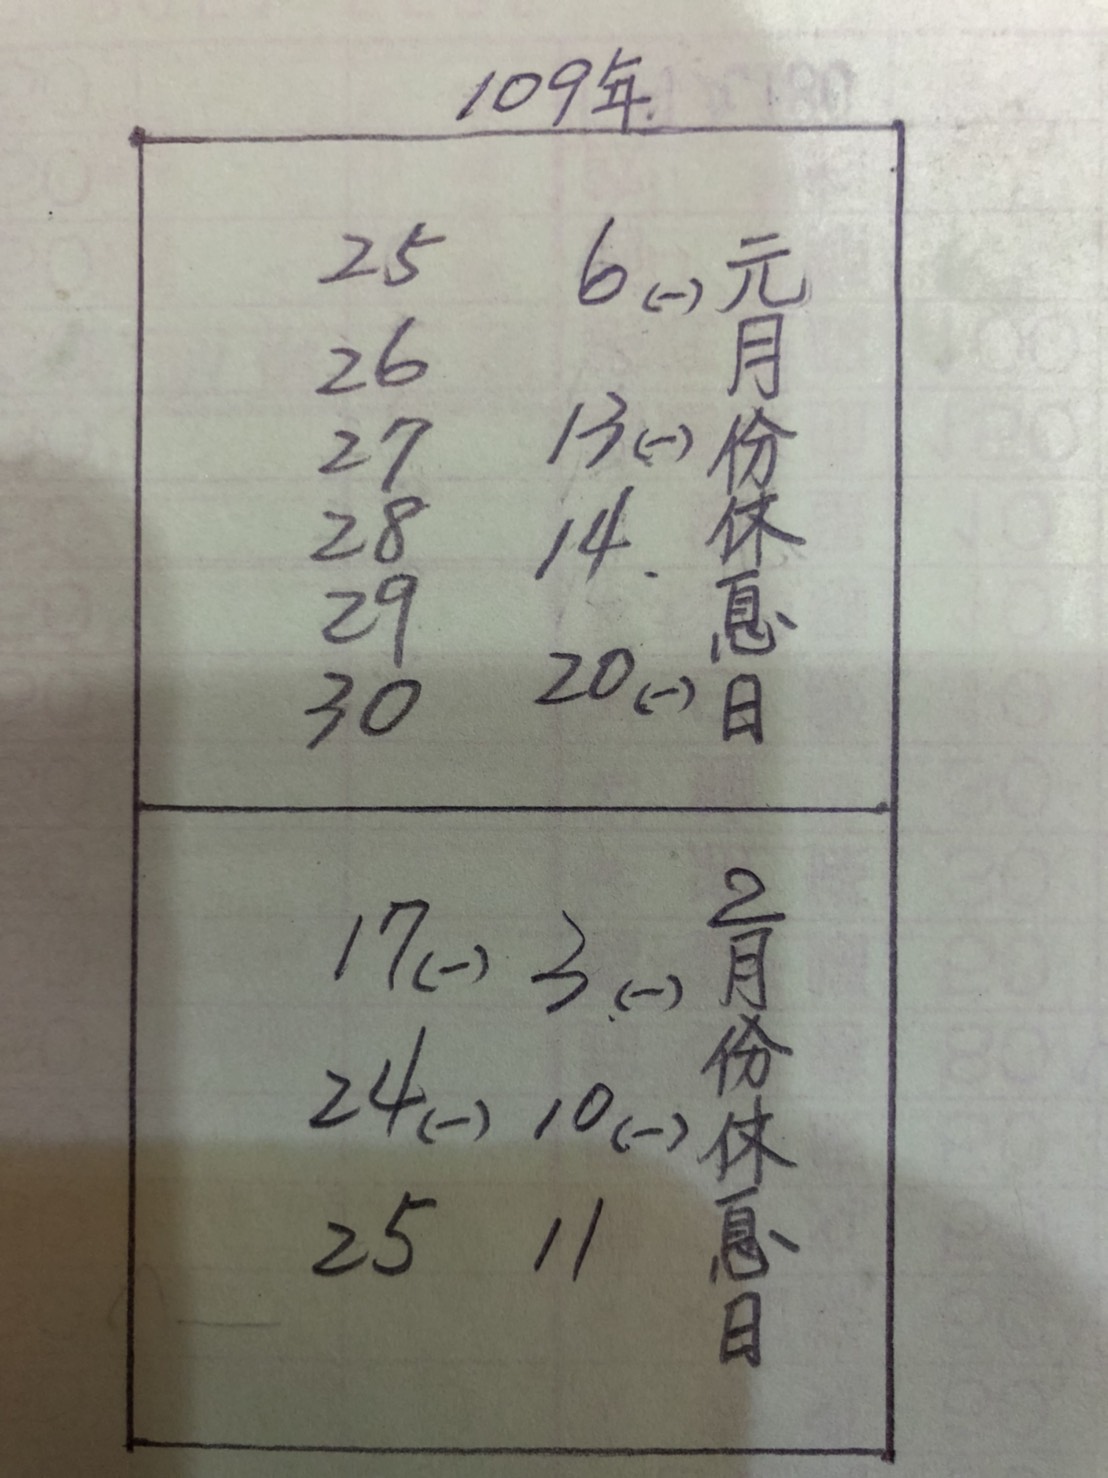 109年
元月份休息日
6(一)
13(一)
14
20(一)
25
26
27
28
29
30
2月份休息日
3(一)
10(一)
11
17(一)
24(一)
25